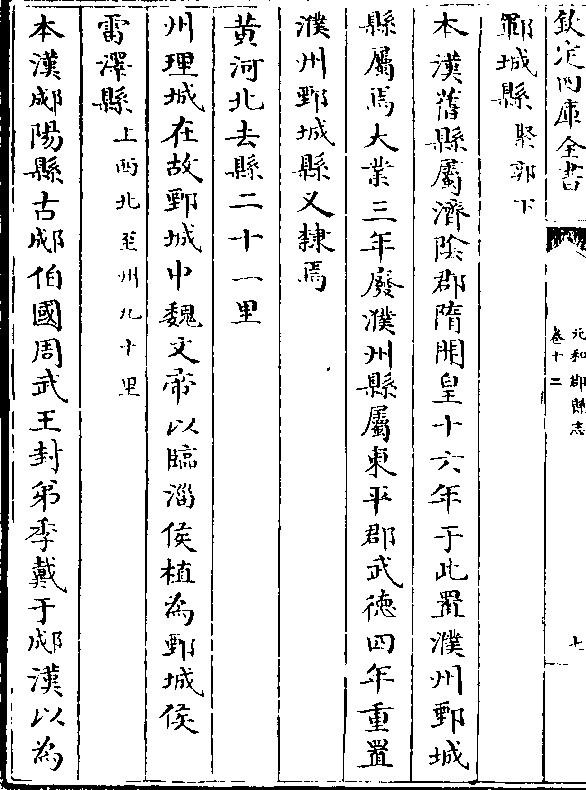 欽定四庫全書
元和郡縣志
卷十二
七
鄄城縣 緊郭下
本漢舊縣屬濟陰郡隋開皇十六年于此置濮州鄄城
縣屬焉大業三年廢濮州縣屬東平郡武徳四年重置
濮州鄄城縣又隸焉
黄河北去縣二十一里
州理城在故鄄城中魏文帝以臨淄侯植為鄄城侯
雷澤縣 上西北至州九十里
本漢郕陽縣古郕伯國周武王封弟季戴于郕漢以為